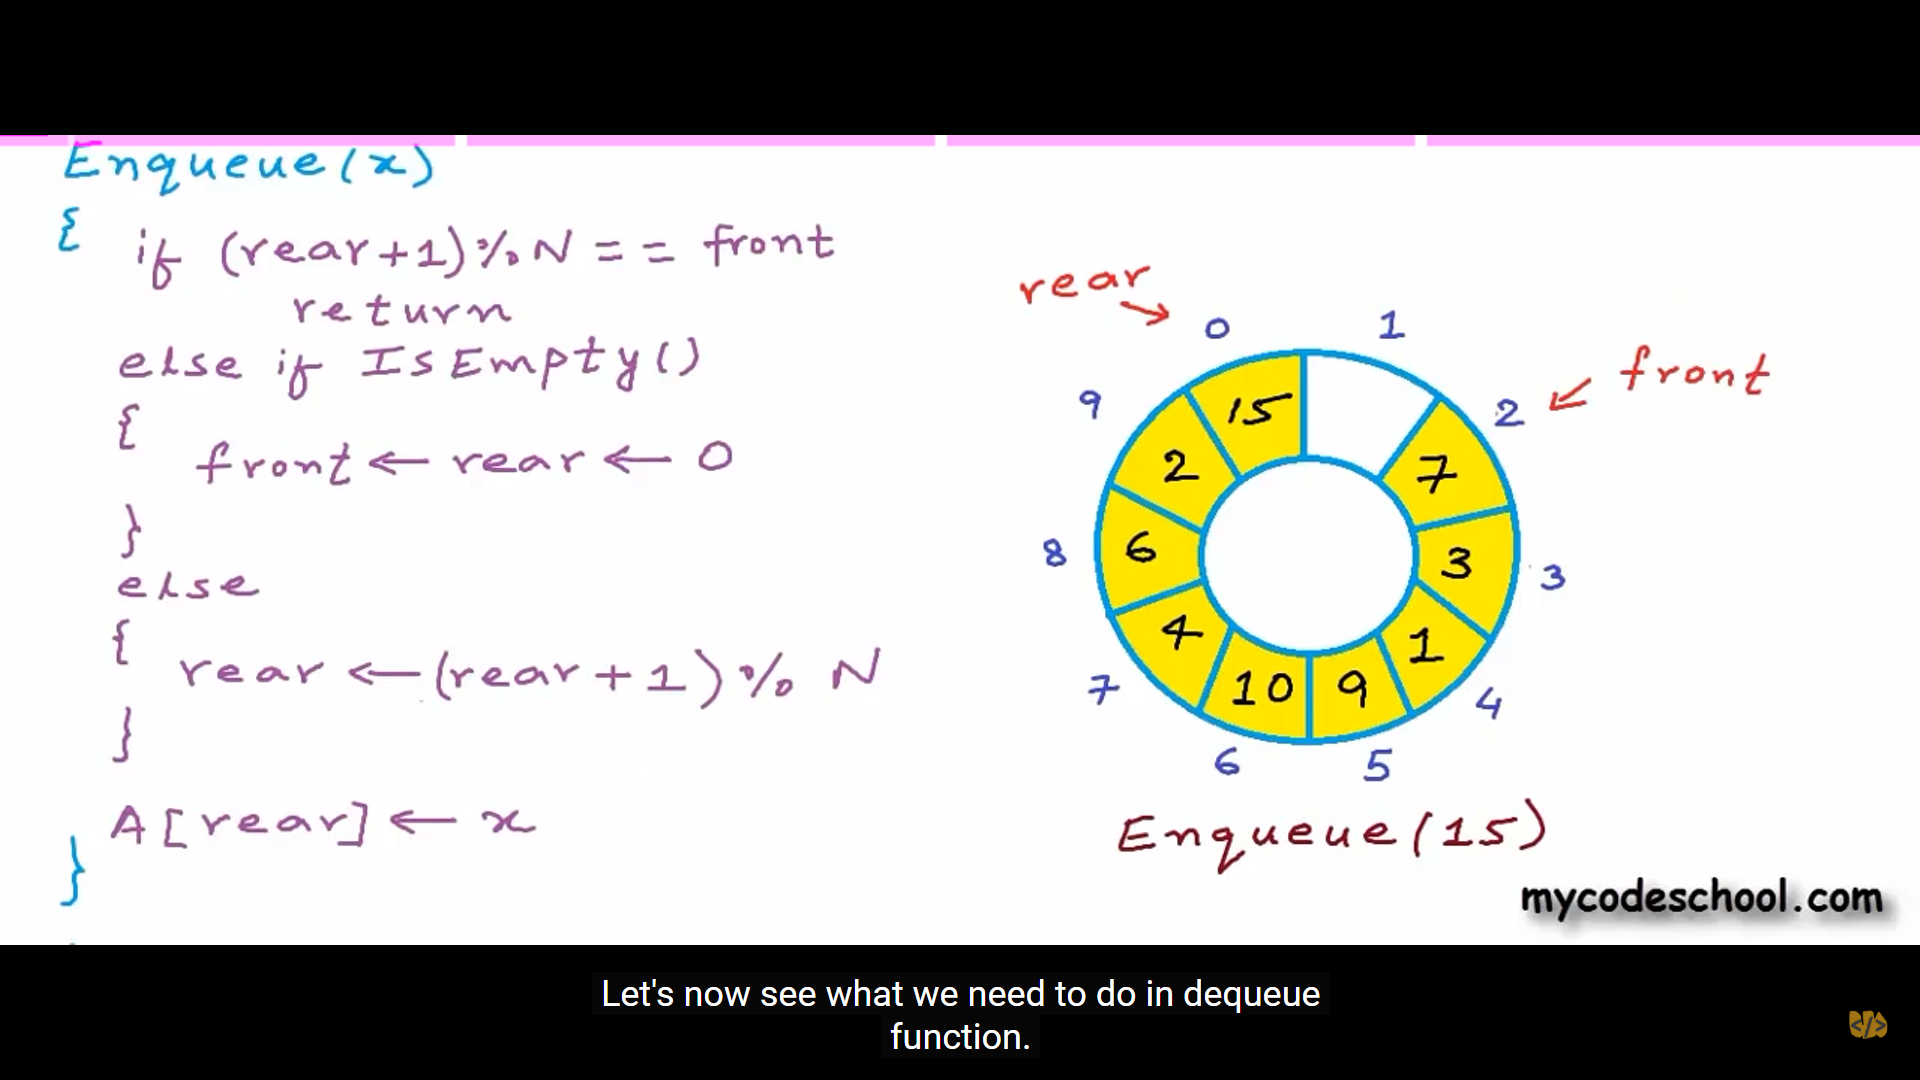 Enqueue(x)
{
if (rear+1)%N == front
return
else if IsEmpty()
{
front ← rear ← 0
}
else
{
rear ← (rear+1)% N
}
A[rear] ← x
}
rear
front
0
1
2
3
4
5
6
7
8
9
15
7
3
1
9
10
4
6
2
Enqueue(15)
mycodeschool.com
Let's now see what we need to do in dequeue
function.